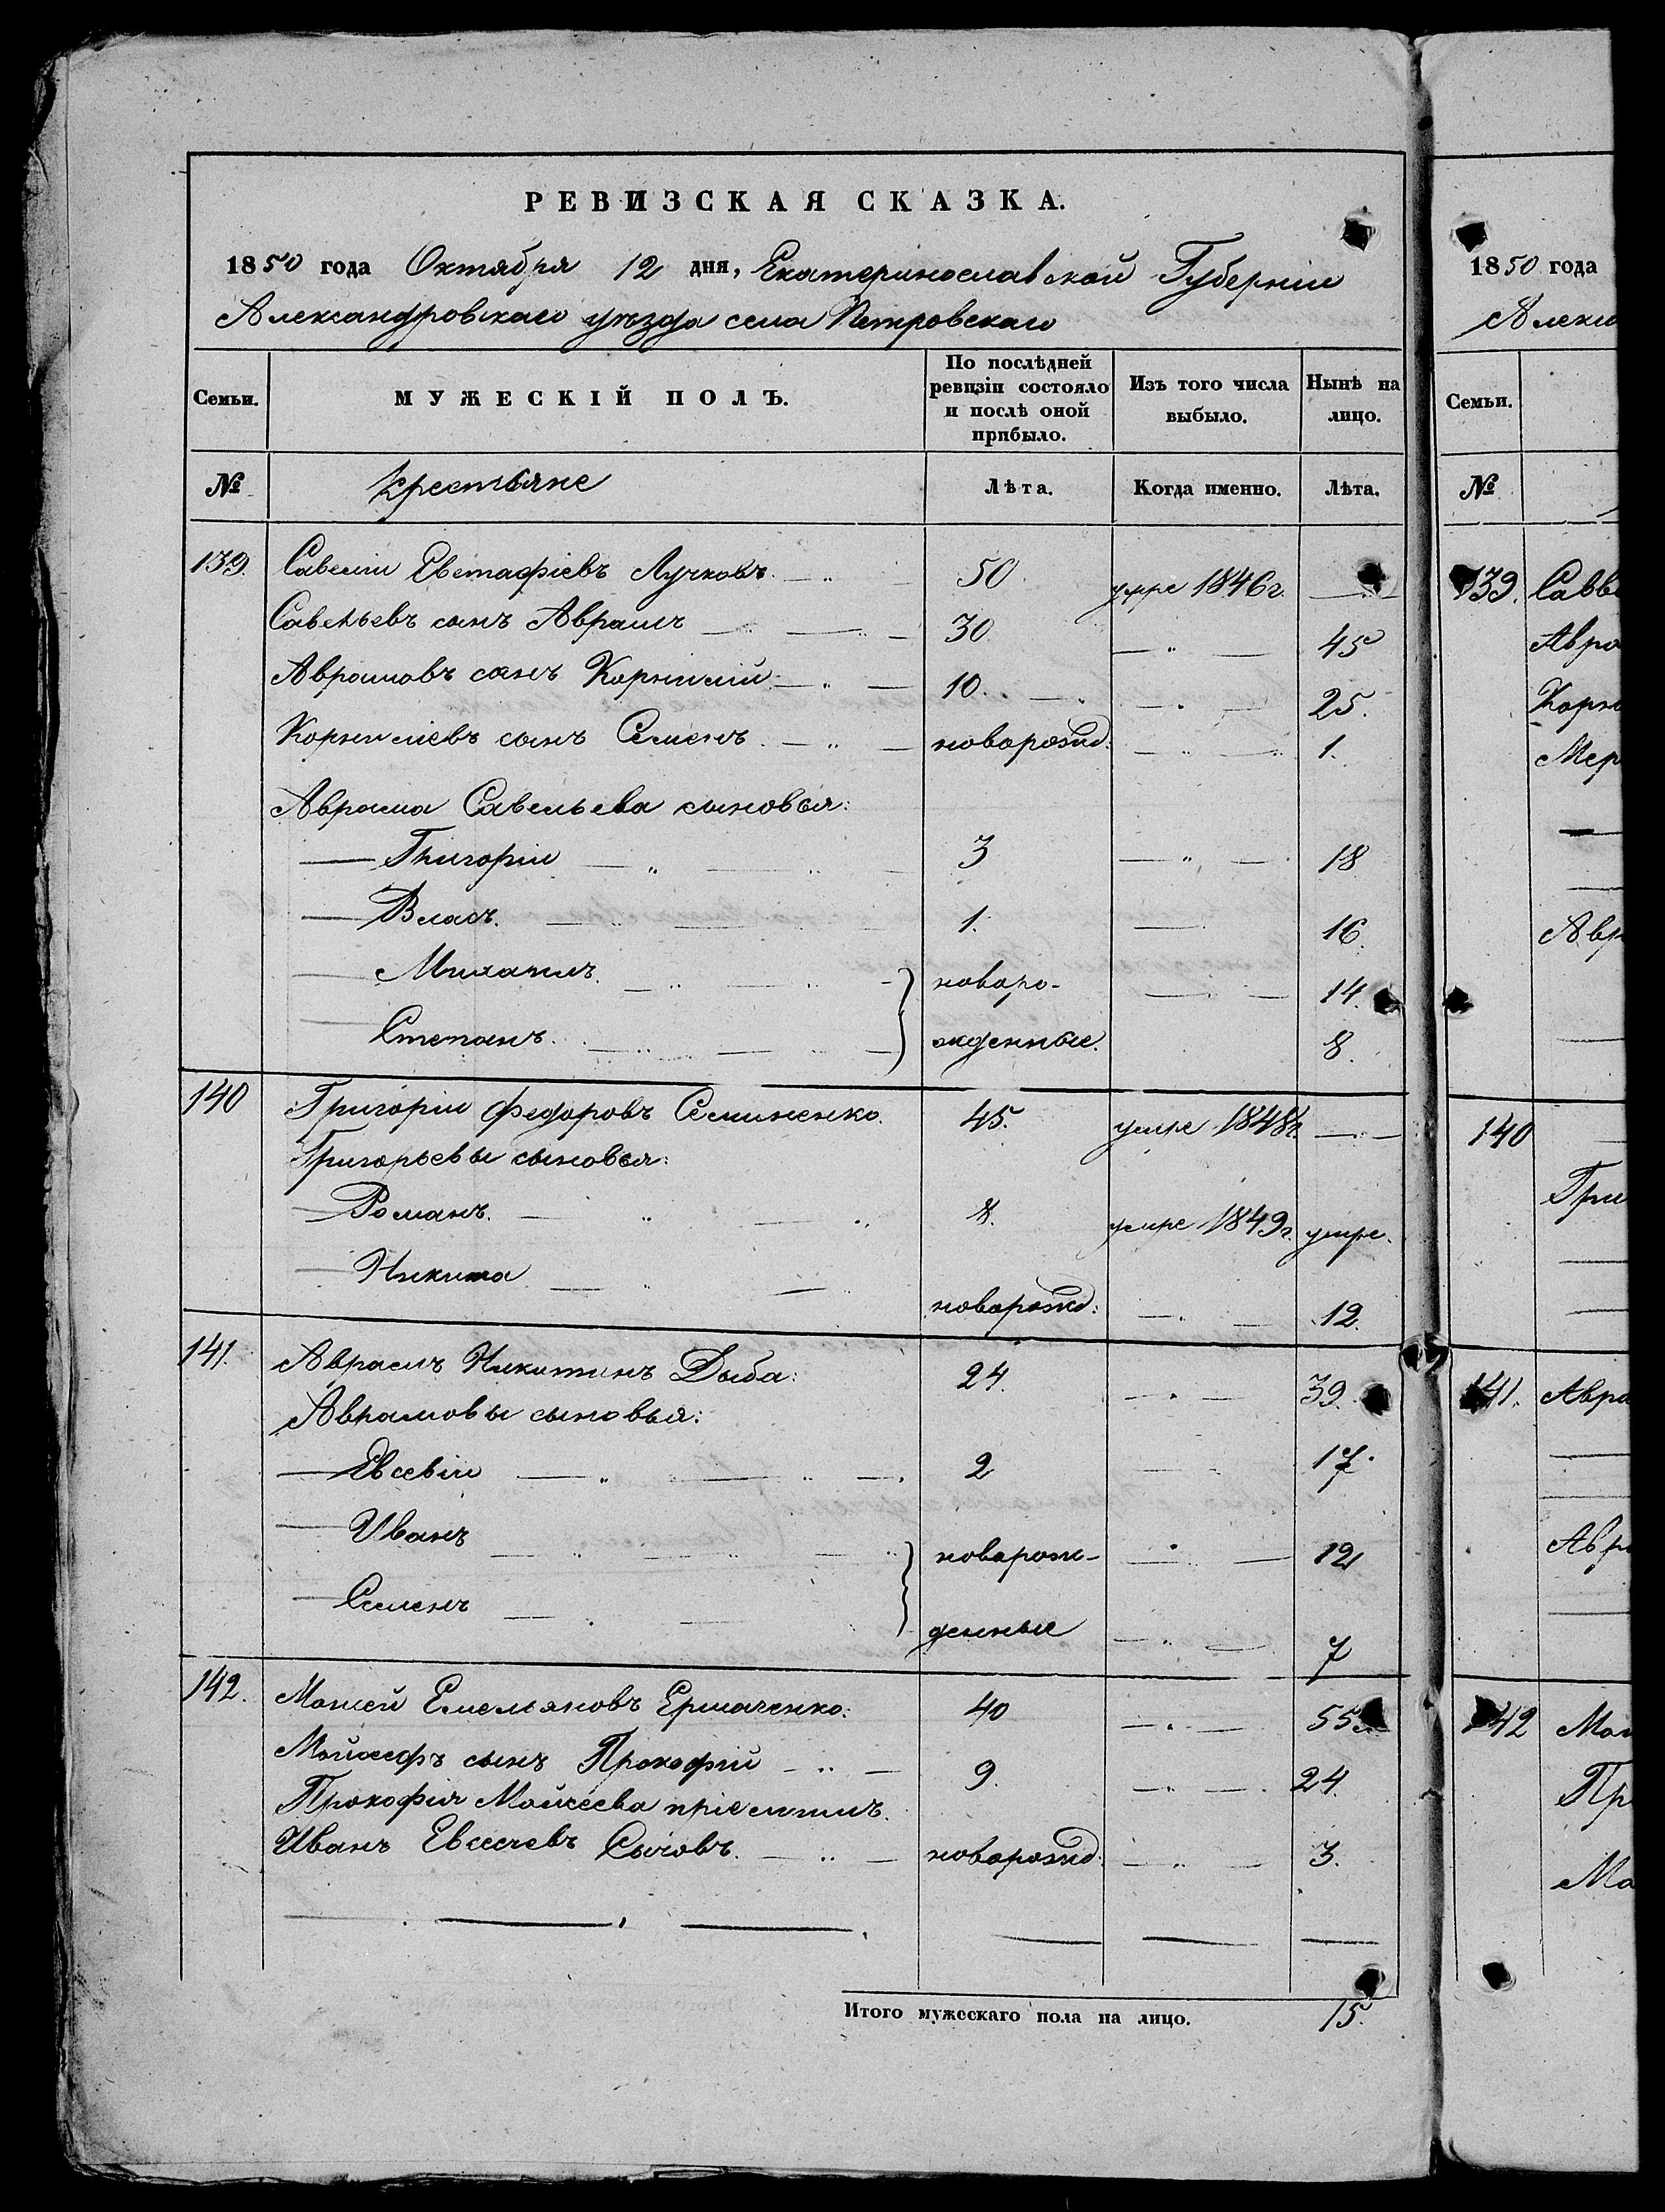 РЕВИЗСКАЯ СКАЗКА.
1850 года Октября 12 дня, Екатеринославской Губерніи
Александровскаго уѣзда села Петровскаго
Семьи. МУЖЕСКІЙ ПОЛЪ. По послѣдней ревизіи состояло и послѣ оной прибыло. Изъ того числа выбыло. Нынѣ на лицо.
№ Крестьяне Лѣта. Когда именно. Лѣта.
139. Савелій Евстафіевъ Лучковъ. 50 умре 1846 г.
Савельевъ сынъ Аврамъ 30 45
Аврамовъ сынъ Корнилій 10. 25.
Корниліевъ сынъ Семенъ новорожд: 1.
Аврама Савельева сыновья:
Григорій 3 18
Власъ. 1. 16.
Михаилъ. новоро- 14.
Степанъ. жденные. 8.
140 Григорій Федоровъ Семиненко. 45. умре 1848 г.
Григорьевы сыновья:
Романъ. 8. умре 1849 г. умре.
Никита новорожд: 12.
141. Аврамъ Никитинъ Дыба: 24. 39.
Аврамовы сыновья:
Евсевій 2 17.
Иванъ новорож- 12
Семенъ денные 7
142. Моисей Емельяновъ Ермаченко: 40 55.
сынъ Прокофій 9. 24.
Прокофія Моисеева пріемышъ.
Иванъ Евсеевъ Сычовъ. новорожд: 3.
Итого мужескаго пола на лицо. 15.
1850 года
Алекса
Семьи.
№
139. Савв
Авра
Корн
Мер
Авр
140
Гри
141. Авра
Авр
142 Мои
Пр
Мо